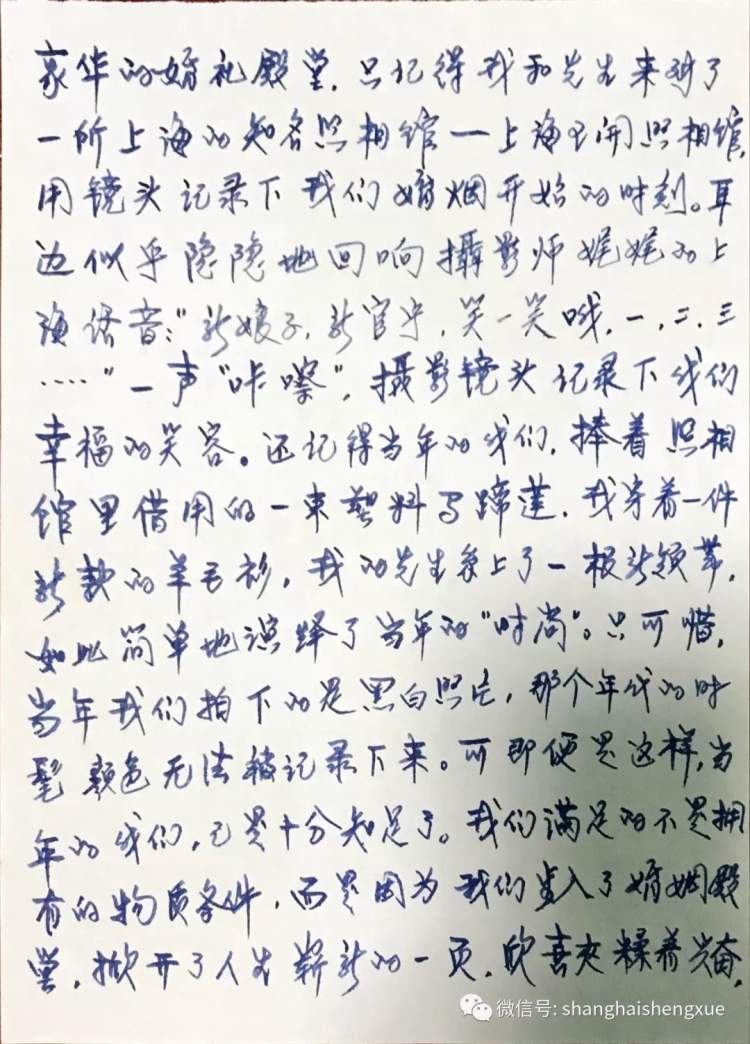 豪华的婚礼殿堂，只记得我和先生来到了
一所上海的知名照相馆—上海王开照相馆，
用镜头记录下我们婚烟开始的时刻。耳
边似乎隐隐地回响摄影师娓娓的上
海话音："新娘子，新官宁，笑一笑哦，一，二，三
……"一声"咔嚓"，摄影镜头记录下我们
幸福的笑容。还记得当年的我们，捧着照相
馆里借用的一束塑料马蹄莲，我穿着一件
新款的羊毛衫，我的先生系上了一根新领带，
如此简单地演绎了当年的"时尚"。只可惜，
当年我们拍下的是黑白照片，那个年代的时
髦颜色无法被记录下来。可即便是这样，当
年的我们，已是十分知足了。我们满足的不是拥
有的物质条件，而是因为我们步入了婚姻殿
堂，掀开了人生崭新的一页，欣喜夹糅着兴奋，
微信号: shanghaishengxue